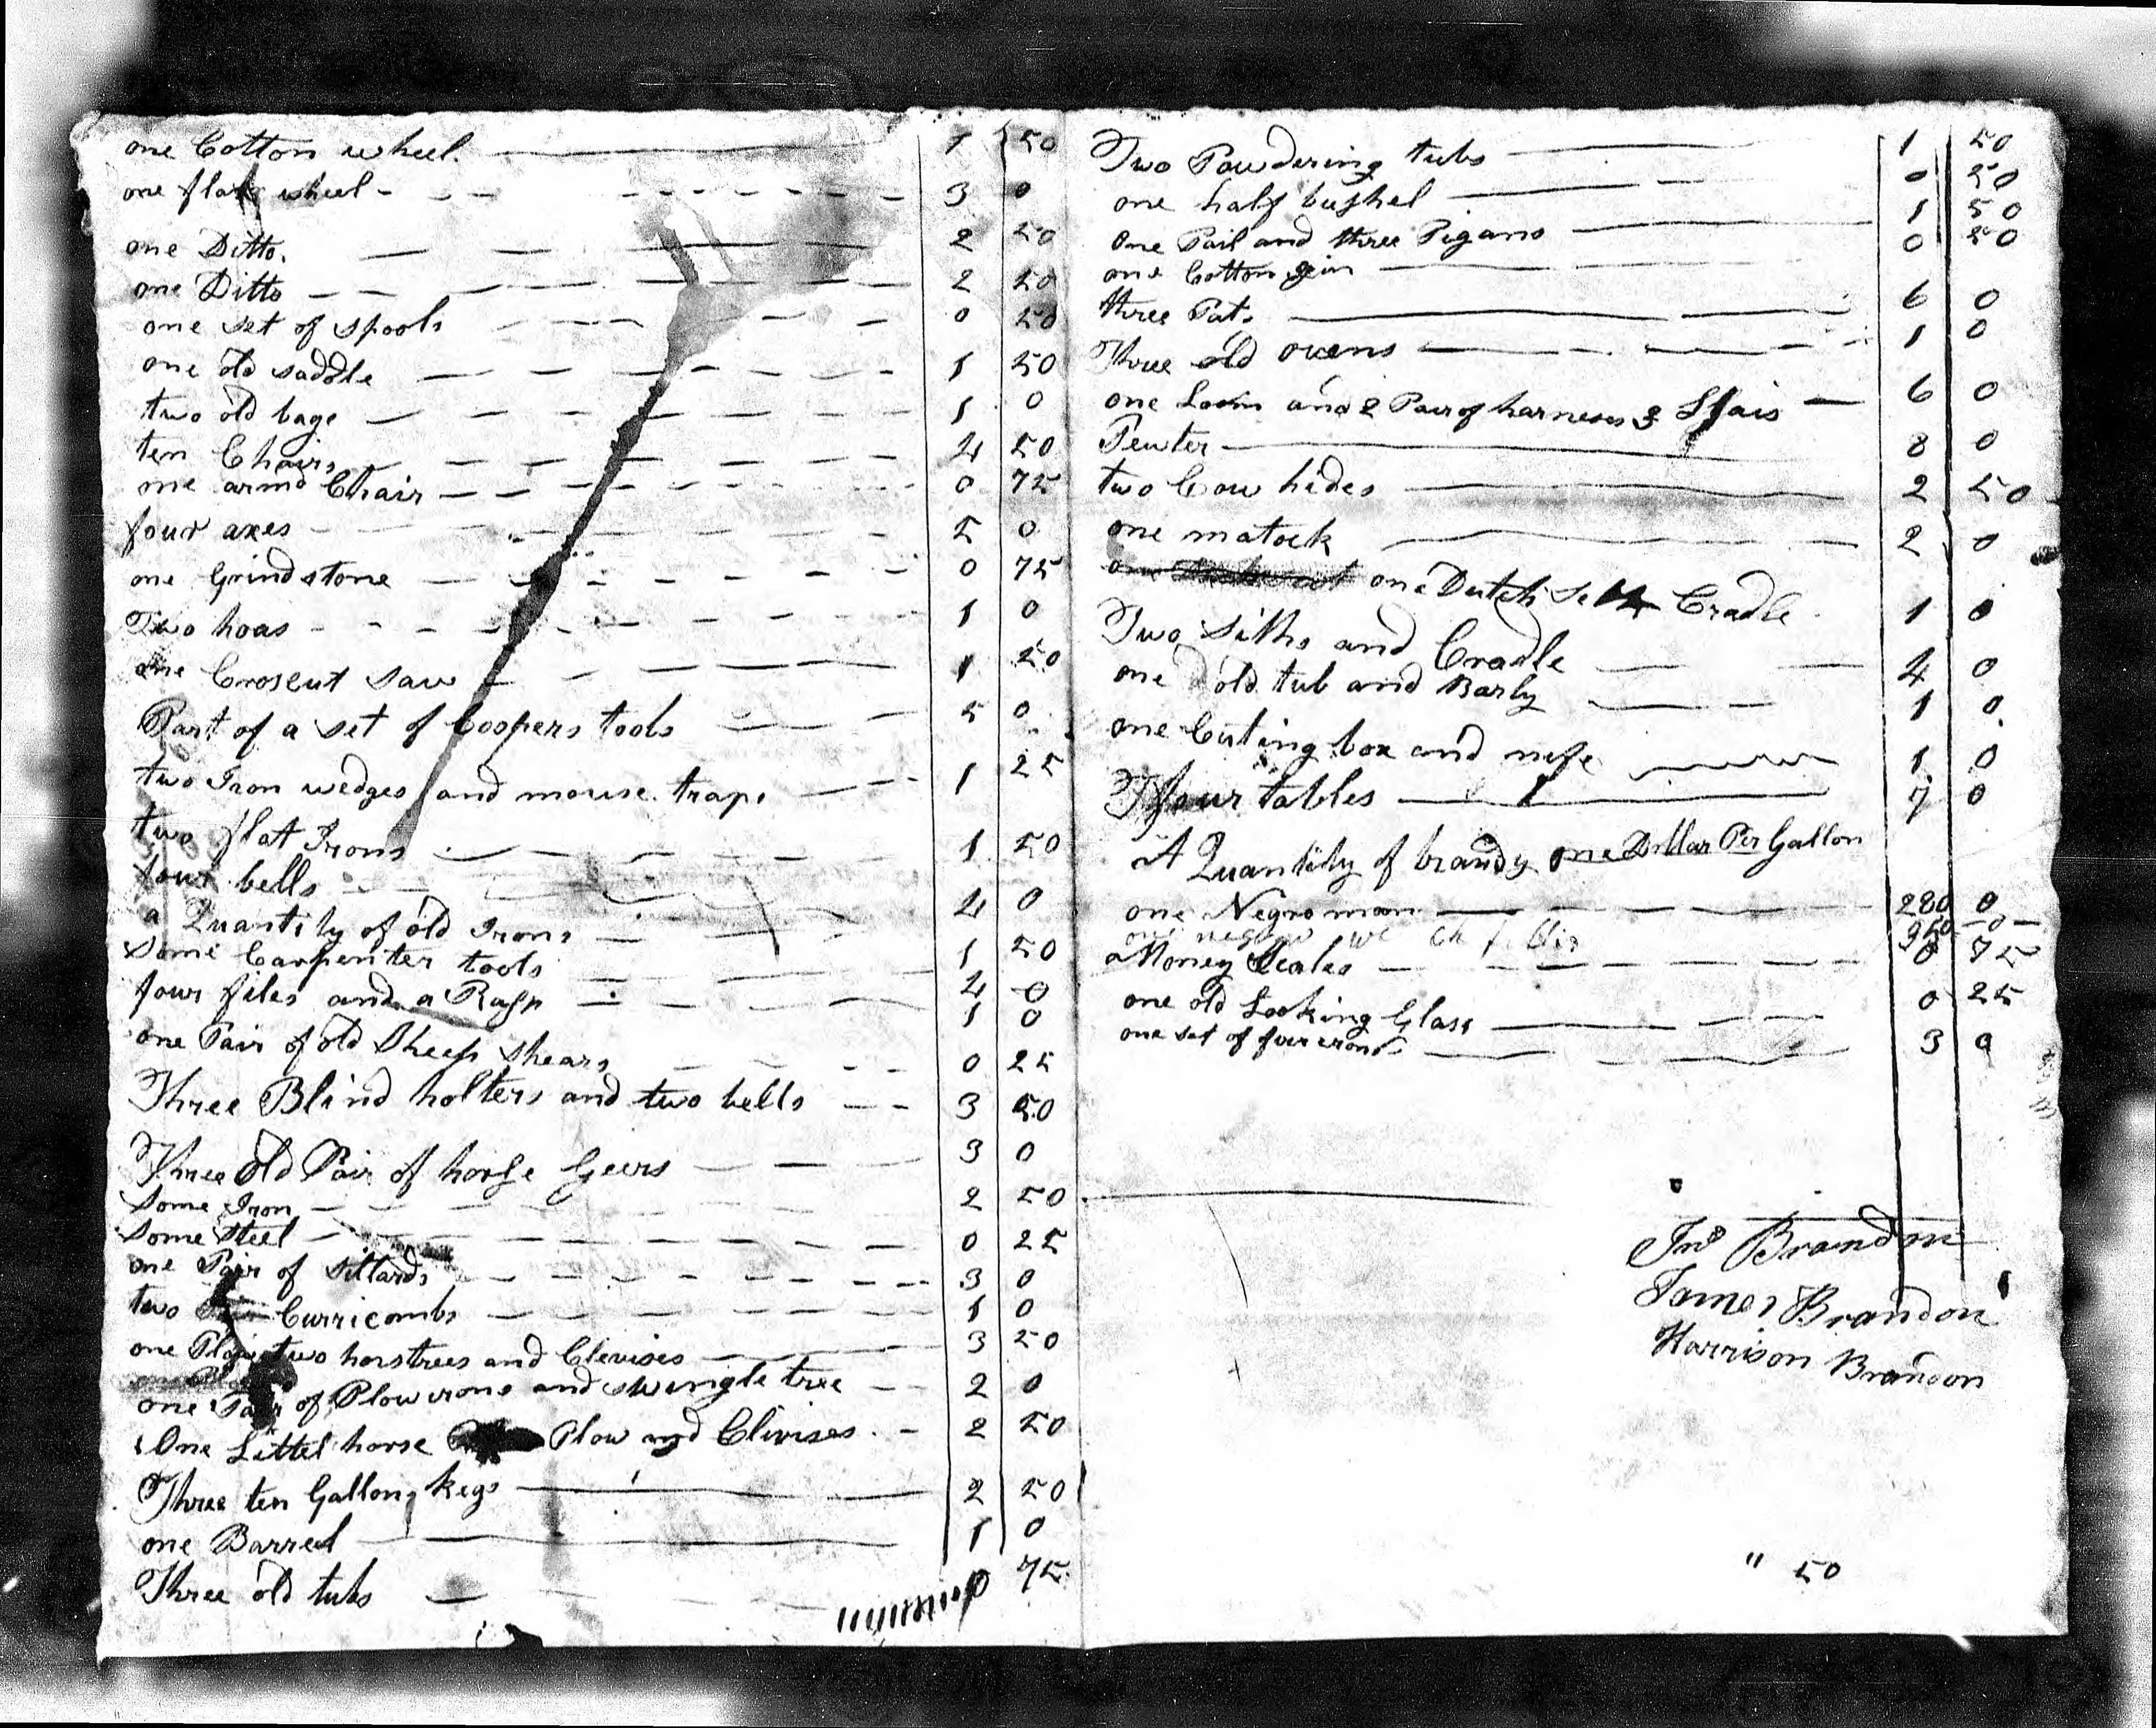 one Cotton wheel. 1 50
one flax wheel 3 0
one Ditto. 2 50
one Ditto 2 50
one set of spools 0 50
one old saddle 1 50
two old bage 1 0
ten Chairs 4 50
one armd Chair 0 75
four axes 5 0
one Grindstone 0 75
Two hoas 1 0
one Croscut saw 1 50
Part of a set of Coopers tools 5 0
two Iron wedges and mouse traps 1 25
two flat Irons 1 50
four bells
a Quantity of old Irons 4 0
Some Carpenter tools 1 50
four files and a Rasp 4 0
1 0
one Pair of old Sheep shears 0 25
Three Blind holters and two bells 3 50
Three Old Pair of horse Geers 3 0
Some Iron 2 50
Some Steel 0 25
one Pair of Stillards 3 0
two Curricombs 1 0
one Plow two horstrees and Clevises 3 50
one Pair of Plow irons and swingle tree 2 0
One Littel horse Plow and Clivises 2 50
Three ten Gallon kegs 2 50
one Barrel 1 0
Three old tubs 0 75
Two Powdering tubs 1 50
one half bushel 0 50
One Pail and three Pigans 1 50
one Cotton gin 0 50
three Pots 6 0
Three old ovens 1 0
one Loom and 2 Pair of harness 3 Slais 6 0
Pewter 8 0
two Cow hides 2 50
one matock 2 0
one Dutch Cradle 1 0
Two Siths and Cradle 4 0
one old tub and Barly 1 0
one Cuting box and nife 1 0
four tables 7 0
A Quantity of brandy one Dollar Per Gallon
one Negro man 280 0
one negro
Money Scales 0 75
one old Looking Glass 0 25
one set of fier irons 3 0
Jno Brandon
James Brandon
Harrison Brandon
" 50